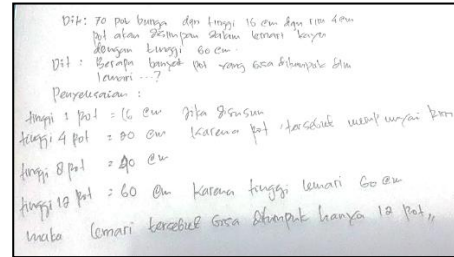 Dik: 70 pot bunga dgn tinggi 16 cm dgn rim 4cm
pot akan disimpan dalam lemari kayu
dengan tinggi 60 cm.
Dit: Berapa banyak pot yang bisa ditumpuk dlm
lemari ...?
Penyelesaian :
tinggi 1 pot = 16 cm jika disusun
tinggi 4 pot = 20 cm karena pot tersebut mempunyai
tinggi 8 pot = 40 cm
tinggi 12 pot = 60 cm karena tinggi lemari 60 cm
maka lemari tersebut bisa ditumpuk hanya 12 pot,,